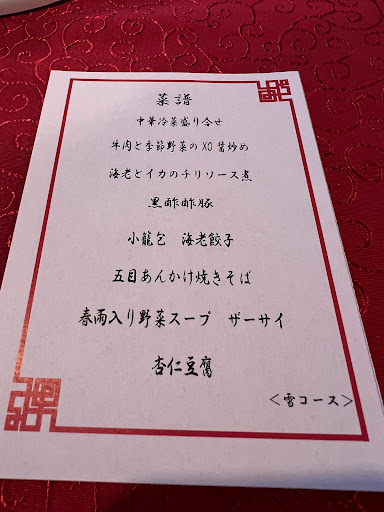 菜譜
中華冷菜盛り合せ
牛肉と季節野菜のXO醤炒め
海老とイカのチリソース煮
黒酢酢豚
小籠包 海老餃子
五目あんかけ焼きそば
春雨入り野菜スープ ザーサイ
杏仁豆腐
<雪コース>